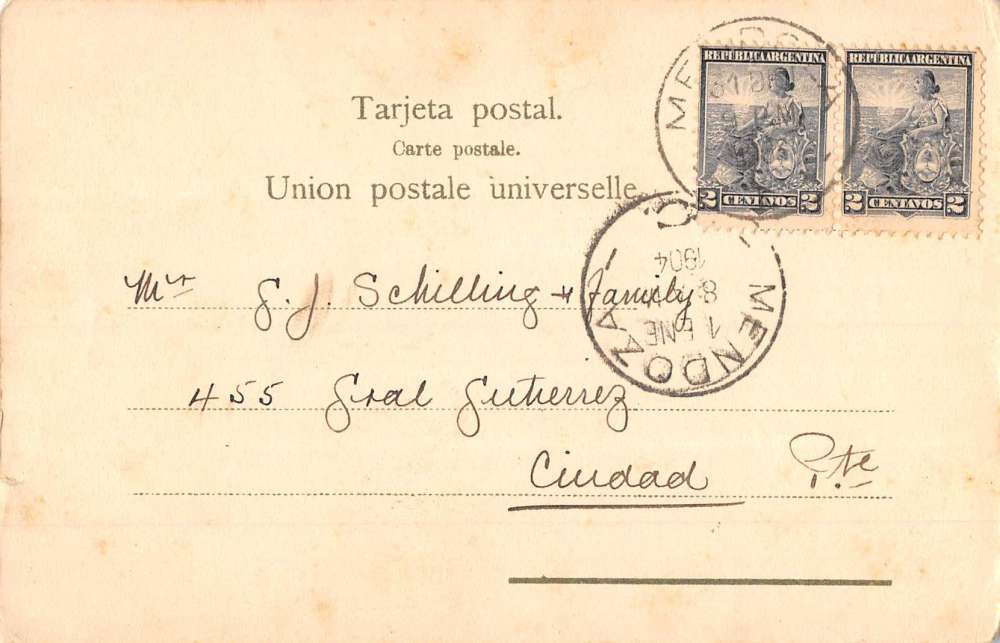 REPUBLICA ARGENTINA
REPUBLICA ARGENTINA
2 CENTAVOS 2
2 CENTAVOS 2
Tarjeta postal.
Carte postale.
Union postale universelle.
MENDOZA
1 ENE
8
1904
Mr G. J. Schilling + Family
455 Gral Gutierrez
Ciudad Pte